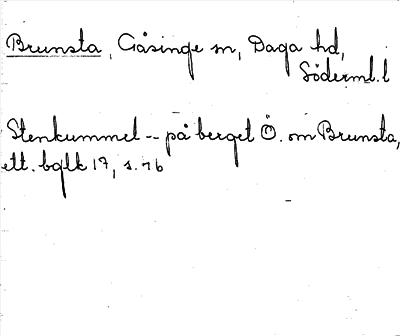 Brunsta, Gåsinge sn, Daga hd,
Söderml. l
Stenkummel -- på berget Ö. om Brunsta,
ett. bqlk 17, s. 76